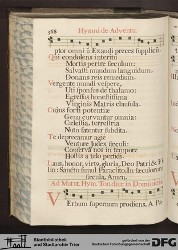 388 Hymni de Adventu.
ptor omnium: Exaudi preces supplicum.
Qui condolens interitu
Mortis perire sæculum:
Salvasti mundum languidum:
Donans reis remedium.
Vergente mundi vespere,
Uti sponsus de thalamo:
Egressus honestissima
Virginis Matris clausula.
Cujus forti potentiæ
Genu curvantur omnia:
Cælestia, terrestria
Nutu fatentur subdita.
Te deprecamur agie
Venture Judex sæculi:
Conserva nos in tempore
Hostis a telo perfidi.
Laus, honor, virtus, gloria, Deo Patri & Fi
lio: Sancto simul Paraclito in sæculorum
sæcula, Amen.
Ad Matut. Hym. Dominicis
Verbum supernum prodiens, A Patre
Stadtbibliothek
und Stadtarchiv Trier
gefördert von der
Deutschen Forschungsgemeinschaft
DFG